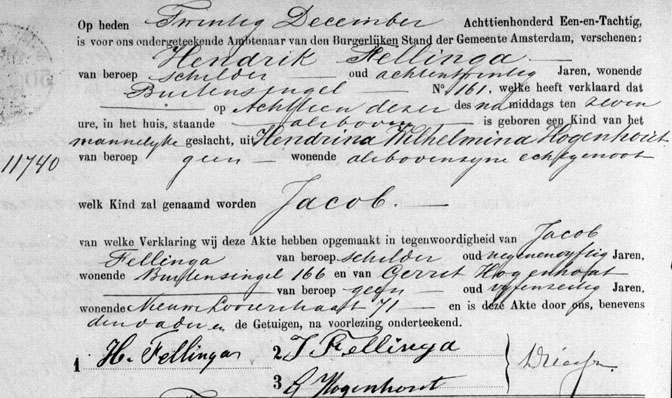 Op heden Twintig December Achttienhonderd Een-en-Tachtig,
is voor ons ondergeteekende Ambtenaar van den Burgerlijken Stand der Gemeente Amsterdam, verschenen:
Hendrik Fellinga
van beroep schilder oud achtentwintig Jaren, wonende
Buitensingel No. 161, welke heeft verklaard dat
op Achttien dezer des na middags ten zeven
ure, in het huis, staande alsboven is geboren een Kind van het
mannelyke geslacht, uit Hendrina Wilhelmina Hogenhout
11740
van beroep geen wonende alsboven zyne echtgenoot
welk Kind zal genaamd worden Jacob.
van welke Verklaring wij deze Akte hebben opgemaakt in tegenwoordigheid van Jacob
Fellinga van beroep schilder oud negenenvyftig Jaren,
wonende Buitensingel 166 en van Gerrit Hogenhout
van beroep geen oud Jaren,
wonende Nieuwe Looierstraat 71 en is deze Akte door ons, benevens
den vader en de Getuigen, na voorlezing onderteekend.
1 H. Fellinga 2 J Fellinga
3 G Hogenhout